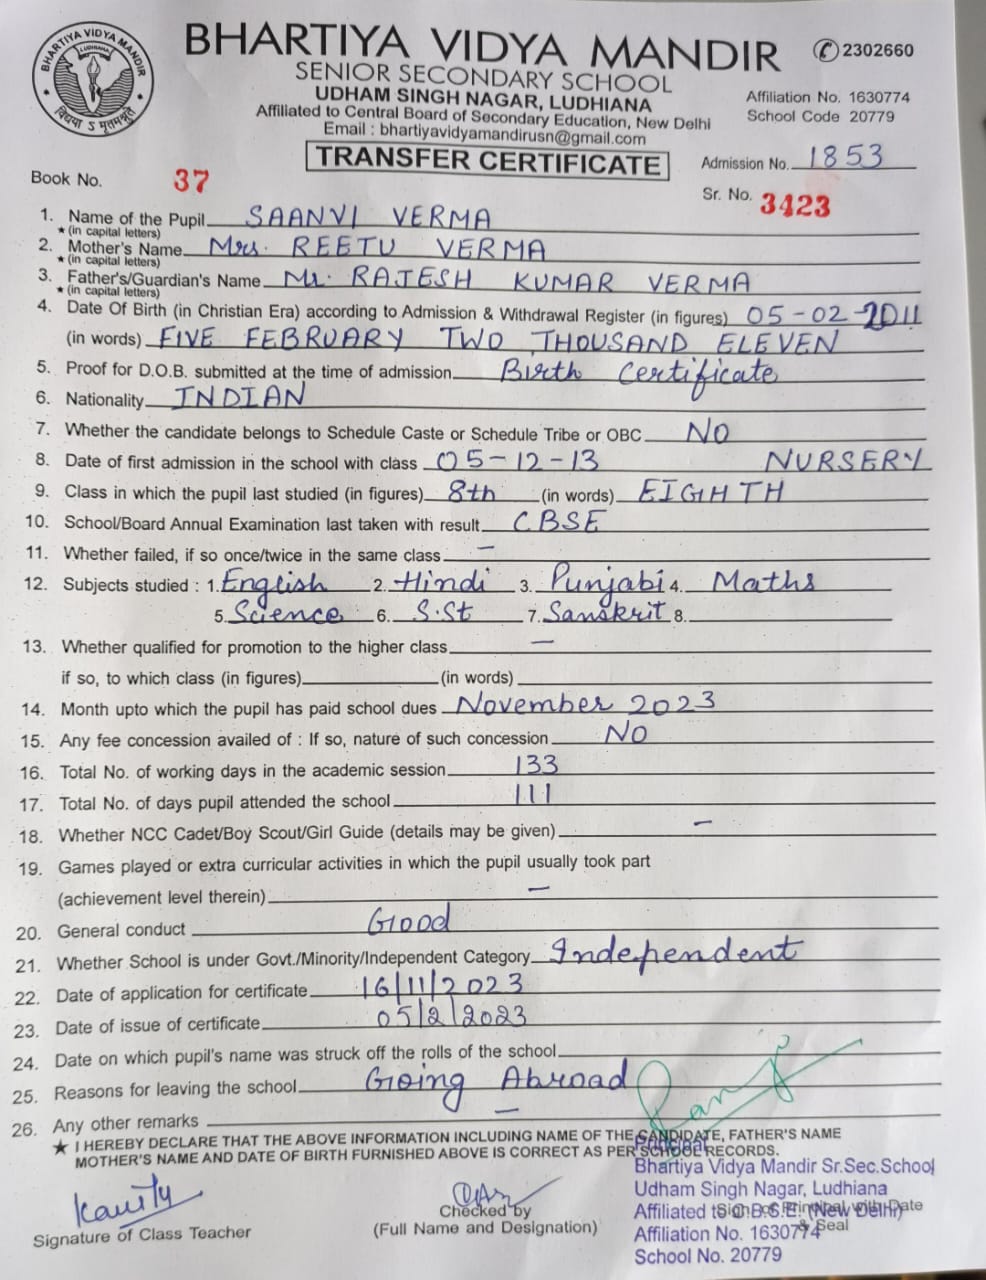 BHARTIYA VIDYA MANDIR
LUDHIANA
विद्यया ऽ मृतमश्नुते
BHARTIYA VIDYA MANDIR
✆ 2302660
SENIOR SECONDARY SCHOOL
UDHAM SINGH NAGAR, LUDHIANA
Affiliation No. 1630774
Affiliated to Central Board of Secondary Education, New Delhi
School Code 20779
Email : bhartiyavidyamandirusn@gmail.com
TRANSFER CERTIFICATE
Admission No. 1853
Book No. 37
Sr. No. 3423
1. Name of the Pupil SAANVI VERMA
★ (in capital letters)
2. Mother's Name Mrs. REETU VERMA
★ (in capital letters)
3. Father's/Guardian's Name Mr. RAJESH KUMAR VERMA
★ (in capital letters)
4. Date Of Birth (in Christian Era) according to Admission & Withdrawal Register (in figures) 05-02-2011
(in words) FIVE FEBRUARY TWO THOUSAND ELEVEN
5. Proof for D.O.B. submitted at the time of admission Birth Certificate
6. Nationality INDIAN
7. Whether the candidate belongs to Schedule Caste or Schedule Tribe or OBC NO
8. Date of first admission in the school with class 05-12-13 NURSERY
9. Class in which the pupil last studied (in figures) 8th (in words) EIGHTH
10. School/Board Annual Examination last taken with result CBSE
11. Whether failed, if so once/twice in the same class —
12. Subjects studied : 1. English 2. Hindi 3. Punjabi 4. Maths
5. Science 6. S.St 7. Sanskrit 8.
13. Whether qualified for promotion to the higher class —
if so, to which class (in figures) (in words)
14. Month upto which the pupil has paid school dues November 2023
15. Any fee concession availed of : If so, nature of such concession NO
16. Total No. of working days in the academic session 133
17. Total No. of days pupil attended the school 111
18. Whether NCC Cadet/Boy Scout/Girl Guide (details may be given) —
19. Games played or extra curricular activities in which the pupil usually took part
(achievement level therein) —
20. General conduct Good
21. Whether School is under Govt./Minority/Independent Category Independent
22. Date of application for certificate 16/11/2023
23. Date of issue of certificate 05/2/2023
24. Date on which pupil's name was struck off the rolls of the school
25. Reasons for leaving the school Going Abroad
26. Any other remarks —
★ I HEREBY DECLARE THAT THE ABOVE INFORMATION INCLUDING NAME OF THE CANDIDATE, FATHER'S NAME
MOTHER'S NAME AND DATE OF BIRTH FURNISHED ABOVE IS CORRECT AS PER SCHOOL RECORDS.
Principal
Bhartiya Vidya Mandir Sr.Sec.School
Udham Singh Nagar, Ludhiana
Affiliated to C.B.S.E. (New Delhi)
Affiliation No. 1630774
School No. 20779
Signature of Class Teacher
Checked by
(Full Name and Designation)
Sign of Principal with Date
& Seal